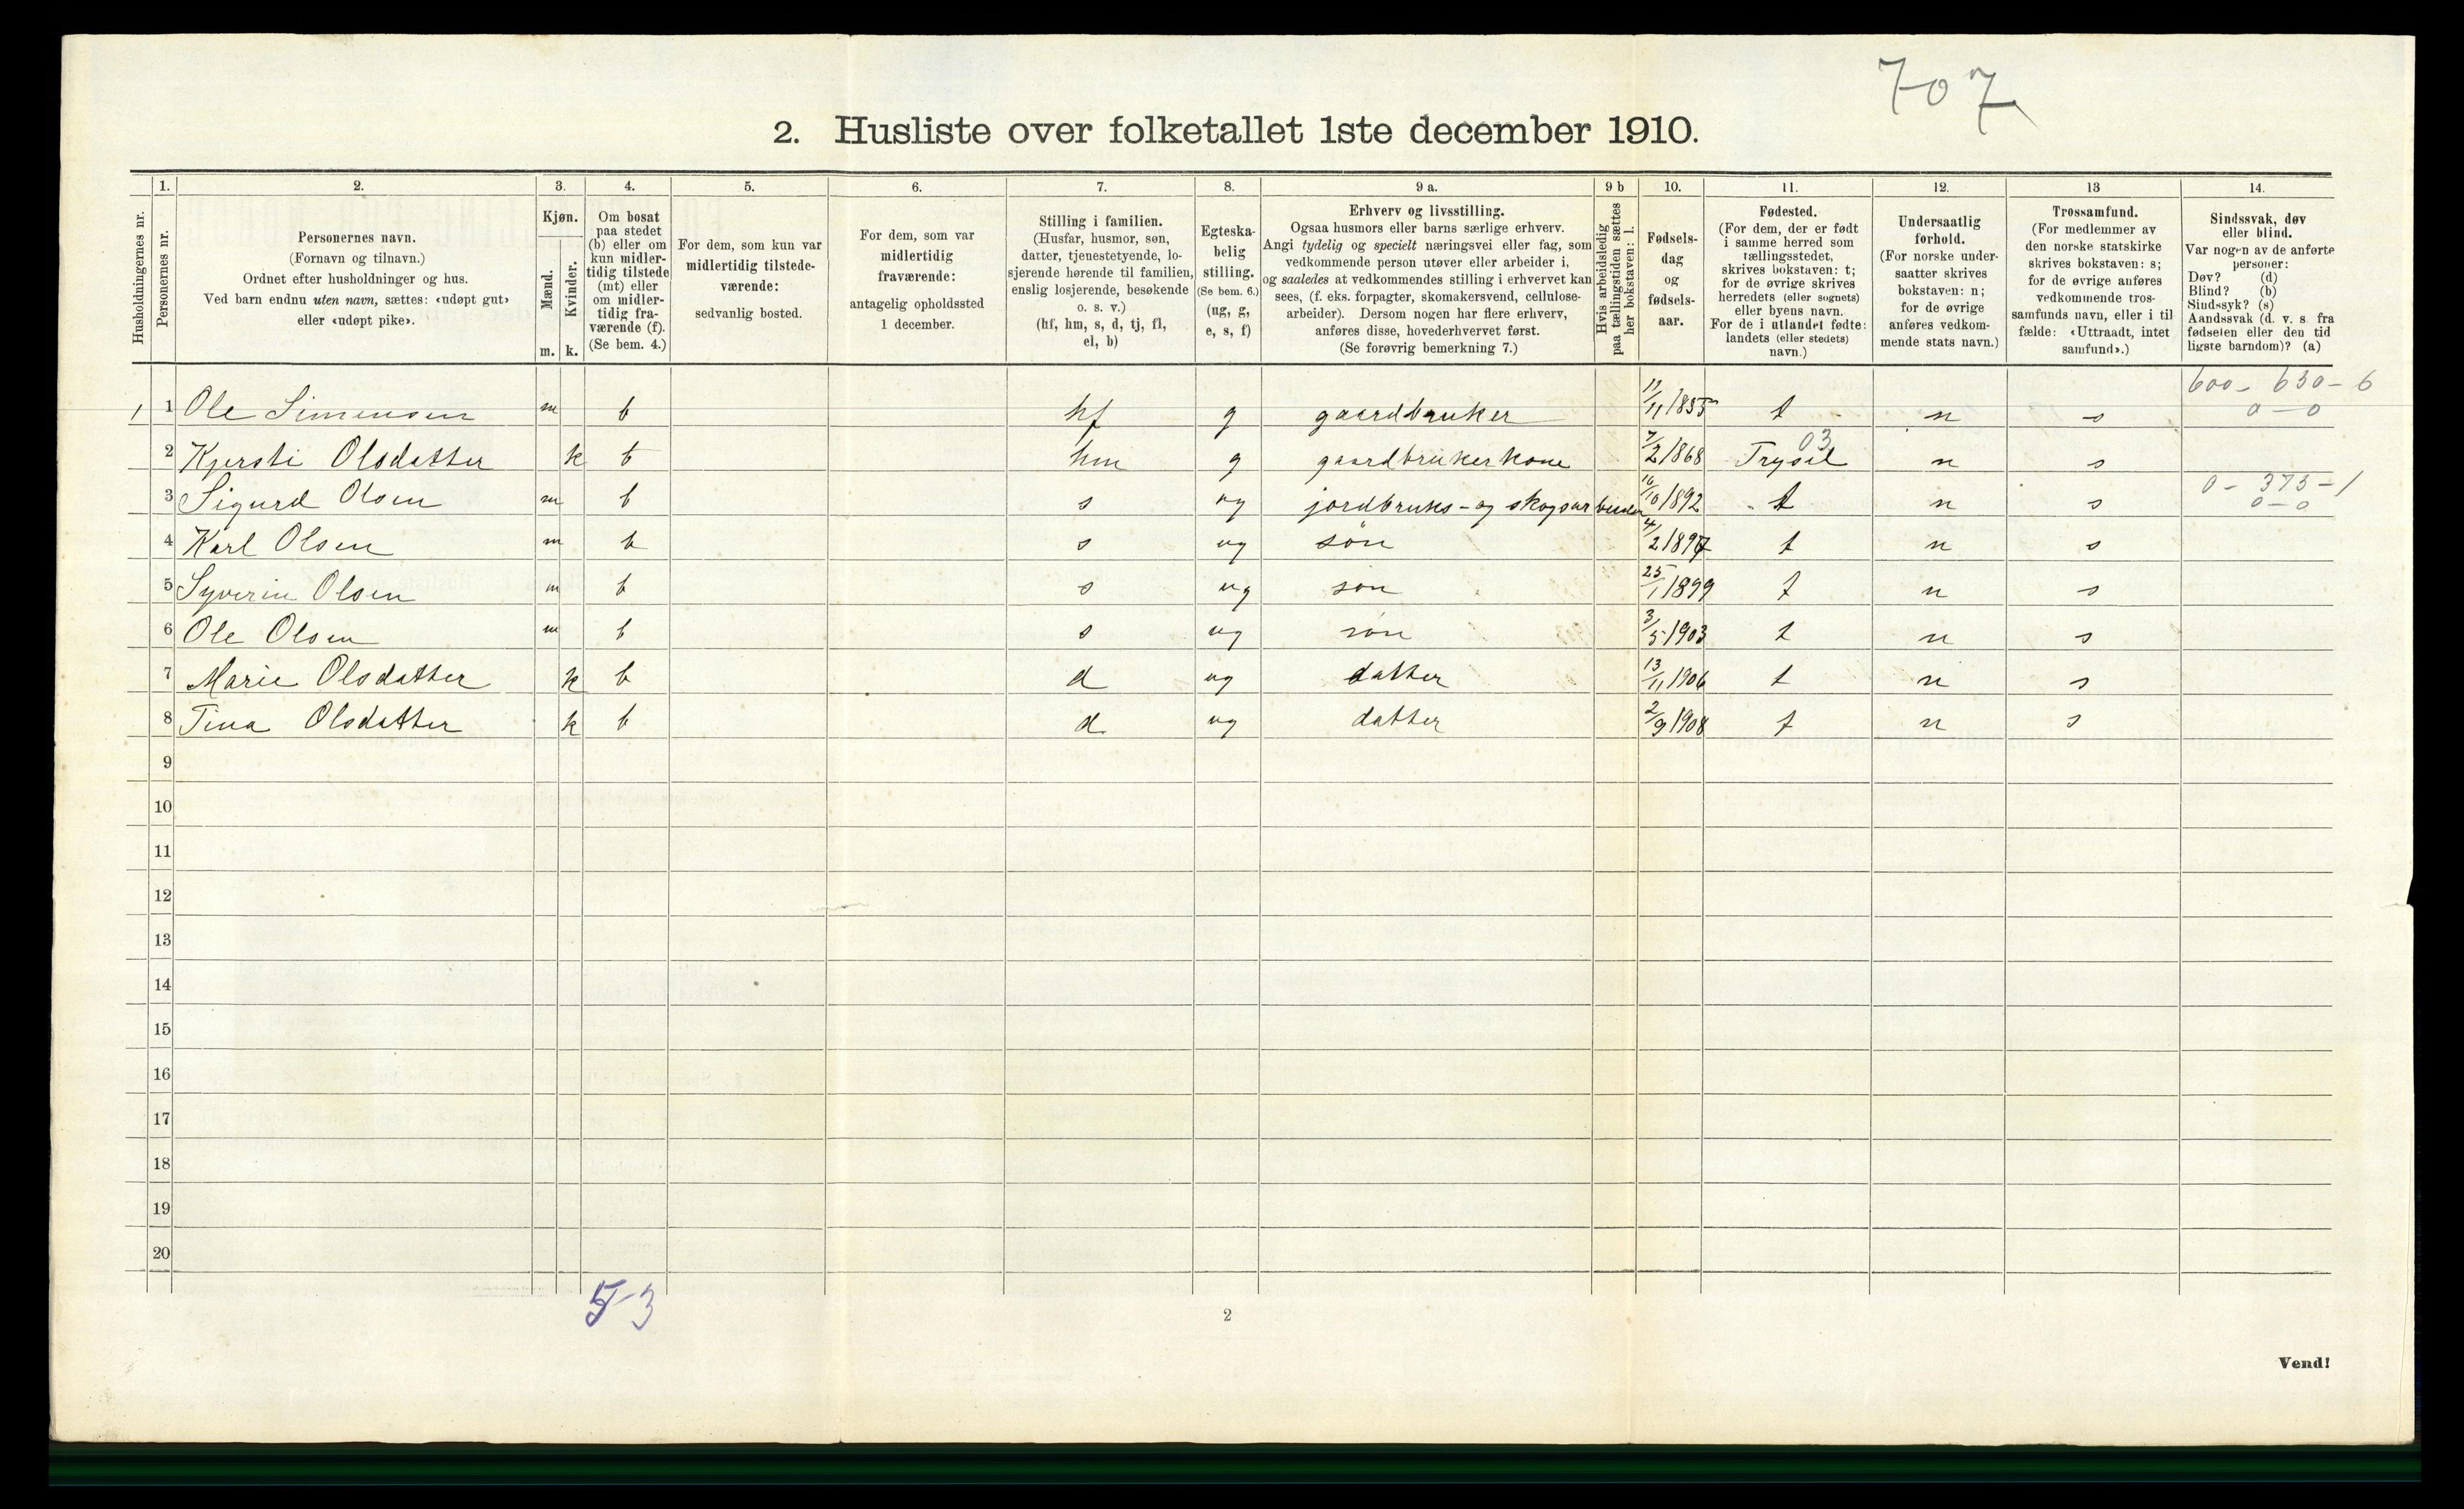 707
2. Husliste over folketallet 1ste december 1910.
Husholdningernes nr.
1.
Personernes nr.
2.
Personernes navn.
(Fornavn og tilnavn.)
Ordnet efter husholdninger og hus.
Ved barn endnu uten navn, sættes: «udøpt gut»
eller «udøpt pike».
3.
Kjøn.
Mænd.
Kvinder.
m. k.
4.
Om bosat
paa stedet
(b) eller om
kun midler-
tidig tilstede
(mt) eller
om midler-
tidig fra-
værende (f).
(Se bem. 4.)
5.
For dem, som kun var
midlertidig tilstede-
værende:
sedvanlig bosted.
6.
For dem, som var
midlertidig
fraværende:
antagelig opholdssted
1 december.
7.
Stilling i familien.
(Husfar, husmor, søn,
datter, tjenestetyende, lo-
sjerende hørende til familien,
enslig losjerende, besøkende
o. s. v.)
(hf, hm, s, d, tj, fl,
el, b)
8.
Egteska-
belig
stilling.
(Se bem. 6.)
(ug, g,
e, s, f)
9 a.
Erhverv og livsstilling.
Ogsaa husmors eller barns særlige erhverv.
Angi tydelig og specielt næringsvei eller fag, som
vedkommende person utøver eller arbeider i,
og saaledes at vedkommendes stilling i erhvervet kan
sees, (f. eks. forpagter, skomakersvend, cellulose-
arbeider). Dersom nogen har flere erhverv,
anføres disse, hovederhvervet først.
(Se forøvrig bemerkning 7.)
9 b
Hvis arbeidsledig
paa tællingstiden sættes
her bokstaven: l.
10.
Fødsels-
dag
og
fødsels-
aar.
11.
Fødested.
(For dem, der er født
i samme herred som
tællingsstedet,
skrives bokstaven: t;
for de øvrige skrives
herredets (eller sognets)
eller byens navn.
For de i utlandet fødte:
landets (eller stedets)
navn.)
12.
Undersaatlig
forhold.
(For norske under-
saatter skrives
bokstaven: n;
for de øvrige
anføres vedkom-
mende stats navn.)
13
Trossamfund.
(For medlemmer av
den norske statskirke
skrives bokstaven: s;
for de øvrige anføres
vedkommende tros-
samfunds navn, eller i til
fælde: «Uttraadt, intet
samfund».)
14.
Sindssvak, døv
eller blind.
Var nogen av de anførte
personer:
Døv? (d)
Blind? (b)
Sindssyk? (s)
Aandssvak (d. v. s. fra
fødselen eller den tid
ligste barndom)? (a)
600 - 630 - 6
1 1 Ole Simensen m b hf g gaardbruker 11/11 1855 t n s 0 - 0
03
2 Kjersti Olsdatter k b hm g gaardbrukerkone 7/2 1868 Trysil n s
0 - 375 - 1
3 Sigurd Olsen m b s ug jordbruks- og skogsarbeider 16/10 1892 t n s 0 - 0
4 Karl Olsen m b s ug søn 4/2 1897 t n s
5 Syverin Olsen m b s ug søn 25/1 1899 t n s
6 Ole Olsen m b s ug søn 3/5 1903 t n s
7 Marie Olsdatter k b d ug datter 13/11 1906 t n s
8 Tina Olsdatter k b d ug datter 2/9 1908 t n s
9
10
11
12
13
14
15
16
17
18
19
20
5-3
2
Vend!